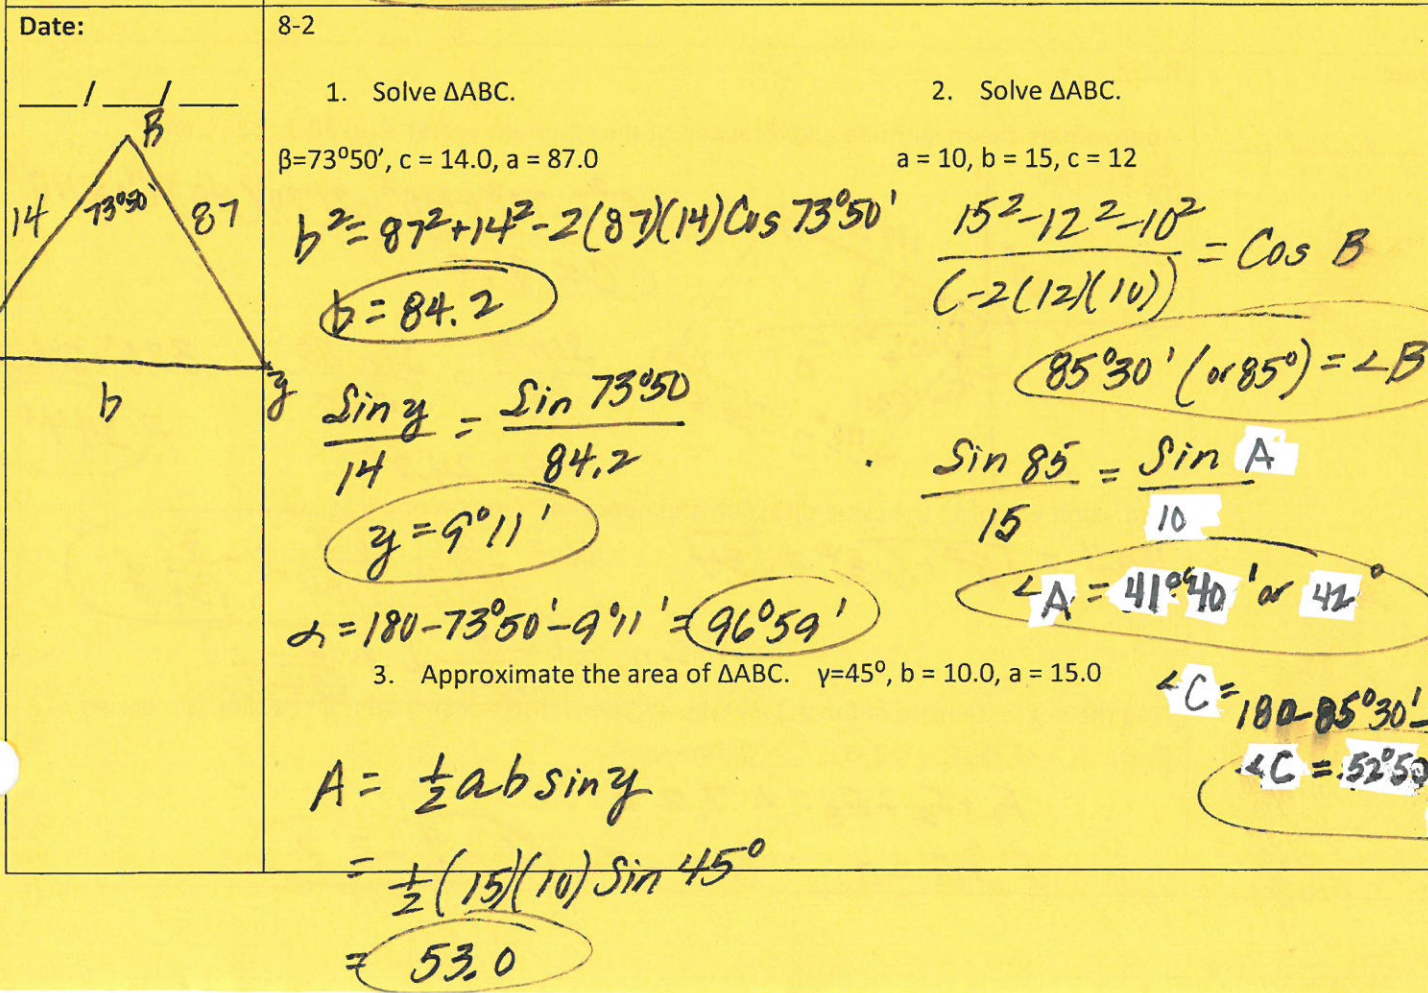 Date:
__/__/__
B
14 73°50' 87
b y
8-2
1. Solve ΔABC.
β=73⁰50', c = 14.0, a = 87.0
b² = 87² + 14² - 2(87)(14) Cos 73°50'
b = 84.2
Sin y / 14 = Sin 73°50 / 84.2
y = 9°11'
α = 180 - 73°50' - 9°11' = 96°59'
2. Solve ΔABC.
a = 10, b = 15, c = 12
15² - 12² - 10² / (-2(12)(10)) = Cos B
85°30' (or 85°) = ∠B
Sin 85 / 15 = Sin A / 10
∠A = 41°40' or 42°
∠C = 180 - 85°30' -
∠C = 52°50
3. Approximate the area of ΔABC. γ=45⁰, b = 10.0, a = 15.0
A = ½ a b sin y
= ½ (15)(10) Sin 45°
= 53.0